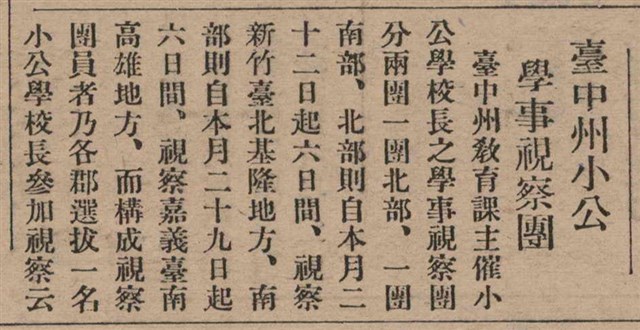 臺中州小公
學事視察團
臺中州敎育課主催小
公學校長之學事視察團
分兩團一團北部、一團
南部、北部則自本月二
十二日起六日間、視察
新竹臺北基隆地方、南
部則自本月二十九日起
六日間、視察嘉義臺南
高雄地方、而構成視察
團員者乃各郡選拔一名
小公學校長參加視察云